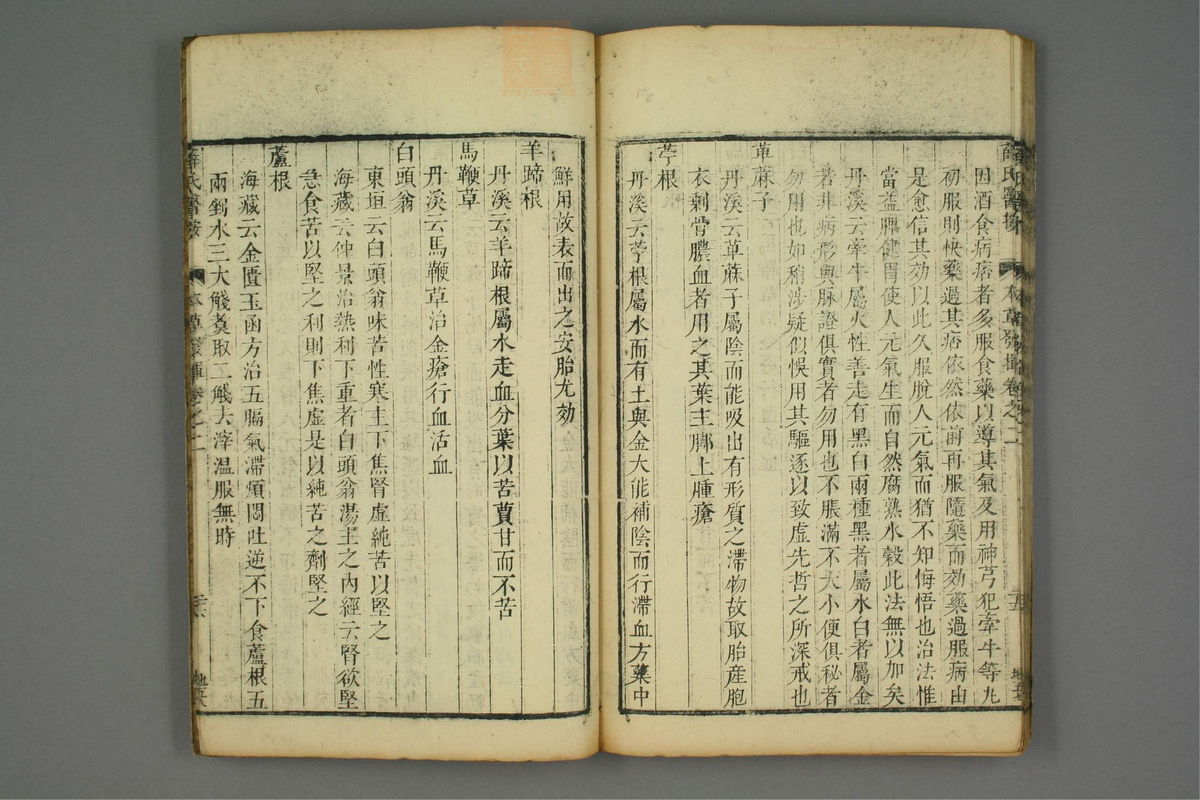 薛氏醫按 本草發揮卷之二
因酒食病痞者多服食藥以導其氣及用神芎犯牽牛等丸
初服則快藥過其痞依然依前再服隨藥而效藥過服病由
是愈信其効以此久服脫人元氣而猶不知悔悟也治法惟
當益脾健胃使人元氣生而自然腐熟水穀此法無以加矣
丹溪云牽牛屬火性善走有黑白兩種黑者屬水白者屬金
若非病形與脉證俱實者勿用也不脹滿不大小便俱秘者
勿用也如稍涉疑似悞用其驅逐以致虛先哲之所深戒也
萆蔴子
丹溪云草蔴子屬陰而能吸出有形質之滯物故取胎産胞
衣剩骨膿血者用之其葉主脚上腫瘡
苧根
丹溪云苧根屬水而有土與金大能補陰而行滯血方藥中
鮮用故表而出之安胎尤効
羊蹄根
丹溪云羊蹄根屬水走血分葉以苦蕒甘而不苦
馬鞭草
丹溪云馬鞭草治金瘡行血活血
白頭翁
東垣云白頭翁味苦性寒主下焦腎虛純苦以堅之
海藏云仲景治熱利下重者白頭翁湯主之內經云腎欲堅
急食苦以堅之利則下焦虛是以純苦之劑堅之
蘆根
海藏云金匱玉函方治五膈氣滯煩悶吐逆不下食蘆根五
兩剉水三大醆煑取二醆去滓溫服無時
薛氏醫按 本草發揮卷之二